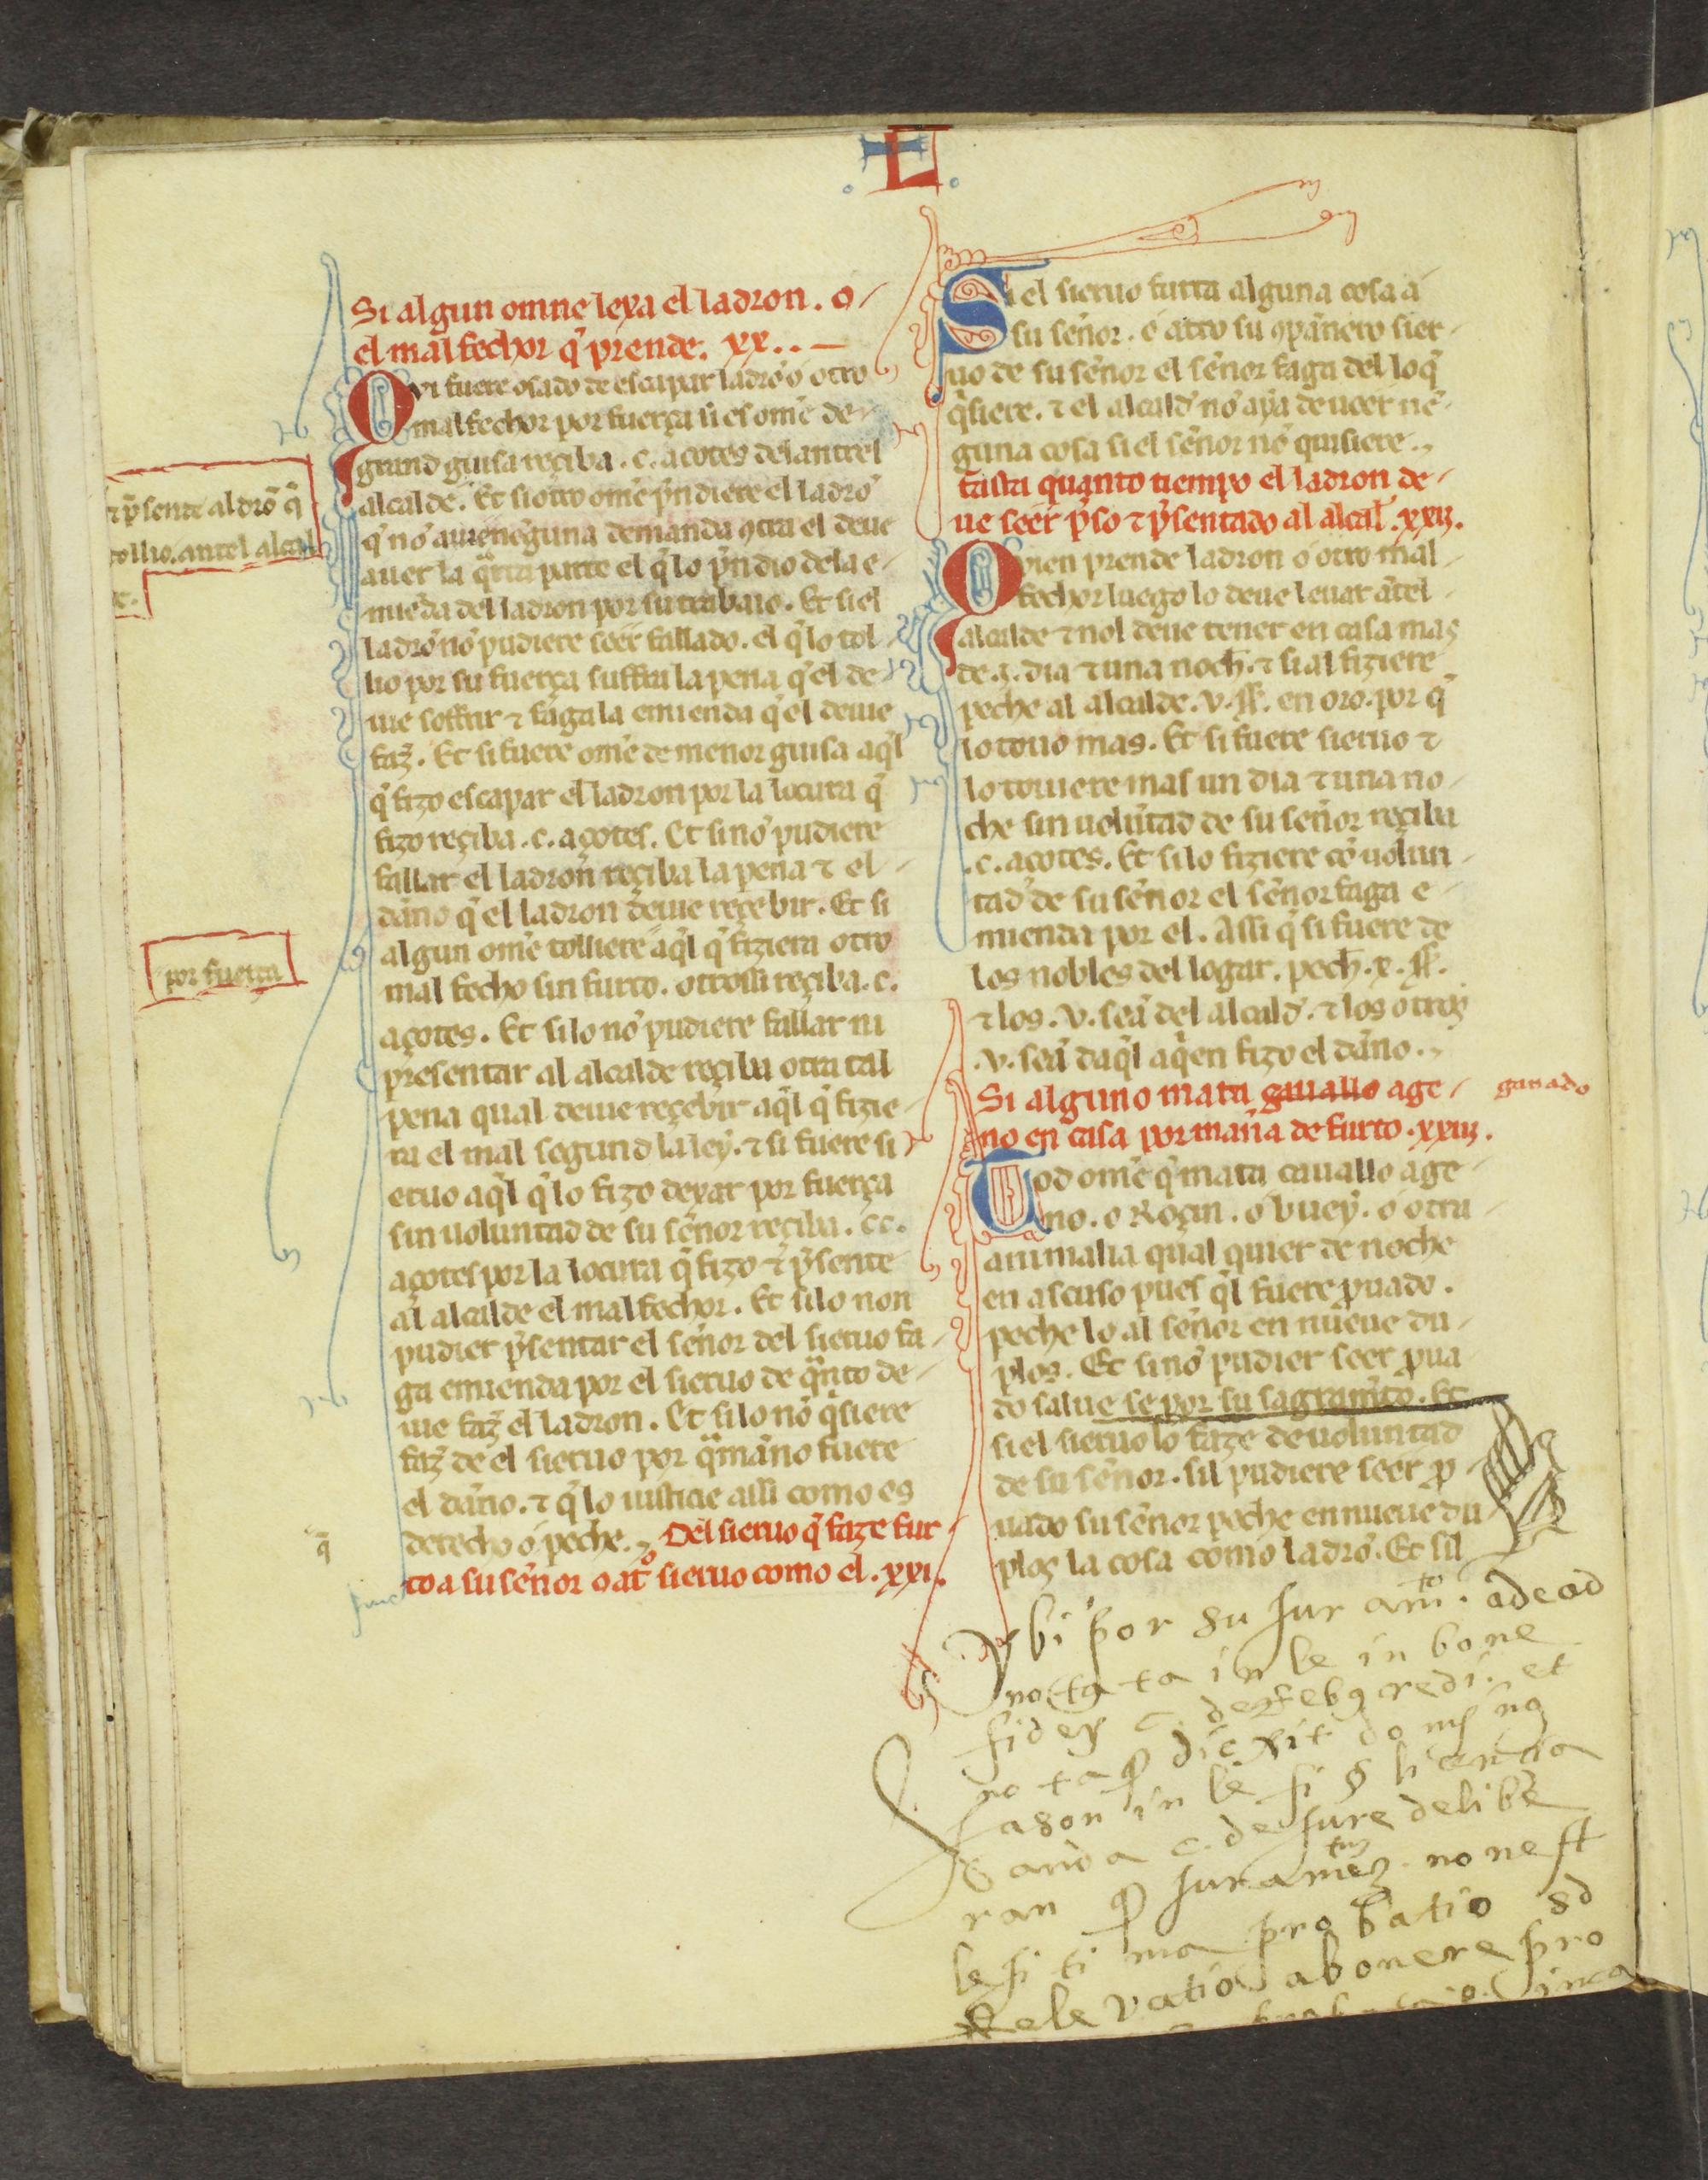 L
Si algun omne lexa el ladron. o
el malfechor q̃ prende. xx..
Qvi fuere osado de escapar ladrõ o otro
malfechor por fuerça si es om̃e de
grand guisa reçiba .c. açotes delantrel
alcalde. Et si otro om̃e p̃ndiere el ladrõ
q̃ nõ aui nẽguna demanda ꝯtra el deue
auer la q̃rta parte el q̃ lo p̃ndio de la e
mieda del ladron por su trabaio. Et si el
ladrõ nõ pudiere seer fallado. el q̃ lo tol
lio por su fuerça suffra la pena q̃ el de
uie soffrir ⁊ faga la emienda q̃ el deuie
faz̃. Et si fuere om̃e de menor guisa aq̃l
q̃ fizo escapar el ladron por la locura q̃
fizo reçiba .c. açotes. Et si nõ pudiere
fallar el ladron reçiba la pena ⁊ el
daño q̃ el ladron deuie reçebir. Et si
algun om̃e tolliere aq̃l q̃ fiziera otro
mal fecho sin furto. otrossi reçiba .c.
açotes. Et si lo nõ pudiere fallar ni
presentar al alcalde reçiba otra tal
pena qual deuie reçebir aq̃l q̃ fizie
ra el mal segund la ley. ⁊ si fuere si
eruo aq̃l q̃ lo fizo dexar por fuerça
sin uoluntad de su señor reçiba .cc.
açotes por la locura q̃ fizo ⁊ p̃sente
al alcalde el malfechor. Et si lo non
pudier p̃sentar el señor del sieruo fa
ga emienda por el sieruo de q̃nto de
uie faz̃ el ladron. Et si lo nõ q̃siere
faz̃ de el sieruo por q̃ mãno fuere
el daño. ⁊ q̃ lo iusticie assi como es
derecho o peche. Del sieruo q̃ faze fur
to a su señor o atº sieruo como el .xxi.
⁊ p̃sente al drõ q̃
tollio. antel alcal
c.
por fuerça
q̃
Si el sieruo furta alguna cosa a
su señor. o atro su ꝯpañero sier
uo de su señor el señor faga del lo q̃
q̃siere. ⁊ el alcald̃ nõ aya deueer nẽ
guna cosa si el señor nõ quisiere.
Fasta quanto tiempo el ladron de
ue seer p̃so ⁊ p̃sentado al alcal̃ .xxij.
Qvien prende ladron o otro mal
fechor luego lo deue leuar ãtel
alcalde ⁊ nol deue tener en casa mas
de .j. dia ⁊ una noch̃. ⁊ si al fiziere
peche al alcalde .v. ss̃. en oro. por q̃
lo touo mas. Et si fuere sieruo ⁊
lo touiere mas un dia ⁊ una no
che sin uolũtad de su señor reçiba
.c. açotes. Et si lo fiziere cõ uolun
tad de su señor el señor faga e
mienda por el. Assi q̃ si fuere de
los nobles del logar. pech̃ .x. ss̃.
⁊ los .v. seã del alcald̃. ⁊ los otros
.v. seã daq̃l aq̃en fizo el daño.
Si alguno mata cauallo age
ganado
no en casa por maña de furto .xxiij.
Tod om̃e q̃ mata cauallo age
no. o Roçin. o buey. o otra
animalia qual quier de noche
en ascuso pues q̃l fuere ꝓuado.
peche lo al señor en nueue du
plos. Et si nõ pudier seer ꝓua
do salue se por su sagramẽto. Et
si el sieruo lo faze de uoluntad
de su señor. sil pudiere seer ꝓ
uado su señor peche en nueue du
plos la cosa como ladrõ. Et sil
ybi por su juramto. adead
notata in le in bone
fidey c. de rebꝯ credi. et
nota q̃ dicxit doms nꝯ
Jason in le si q̃ licentia
c. de jure delibe
ran q̃ juramẽtuz. non est
lesi tima probatio sd
Relevatio abonere pro